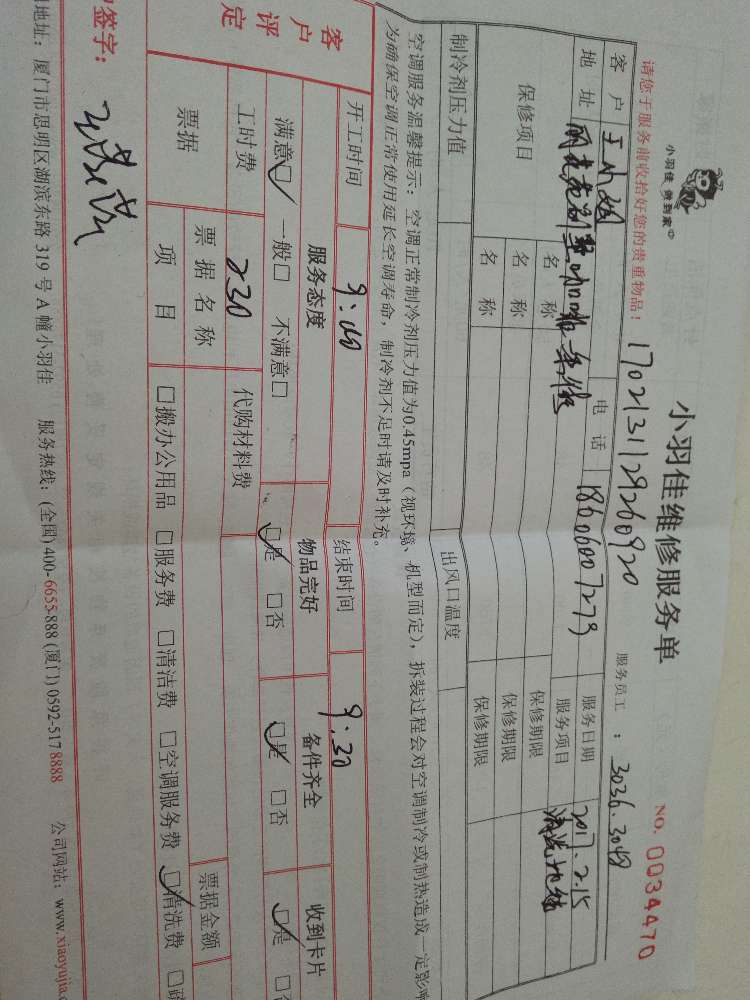 小羽佳 做到家
小羽佳维修服务单
NO. 0034470
请您于服务前收拾好您的贵重物品!
1702131129260920
服务员工 : 3036.3049
客户 王小姐 电话 18606007279 服务日期 2017.2.15
地址 服务项目 清洗地毯
保修项目 名称 保修期限
名称 保修期限
名称 保修期限
制冷剂压力值 出风口温度
空调服务温馨提示: 空调正常制冷剂压力值为0.45mpa(视环境、机型而定), 拆装过程会对空调制冷或制热造成一定影响
为确保空调正常使用延长空调寿命, 制冷剂不足时请及时补充。
开工时间 9:00 结束时间 9:30
客户评定 服务态度 物品完好 备件齐全 收到卡片
满意☑ 一般□ 不满意□ ☑是 □否 ☑是 □否 ☑是
工时费 230 代购材料费
票据 票据名称 票据金额
项目 □搬办公用品 □服务费 □清洁费 □空调服务费 ☑清洗费
签字:
地址: 厦门市思明区湖滨东路 319 号 A 幢小羽佳 服务热线: (全国) 400-6655-888 (厦门) 0592-517 8888 公司网站: www.xiaoyujia.c